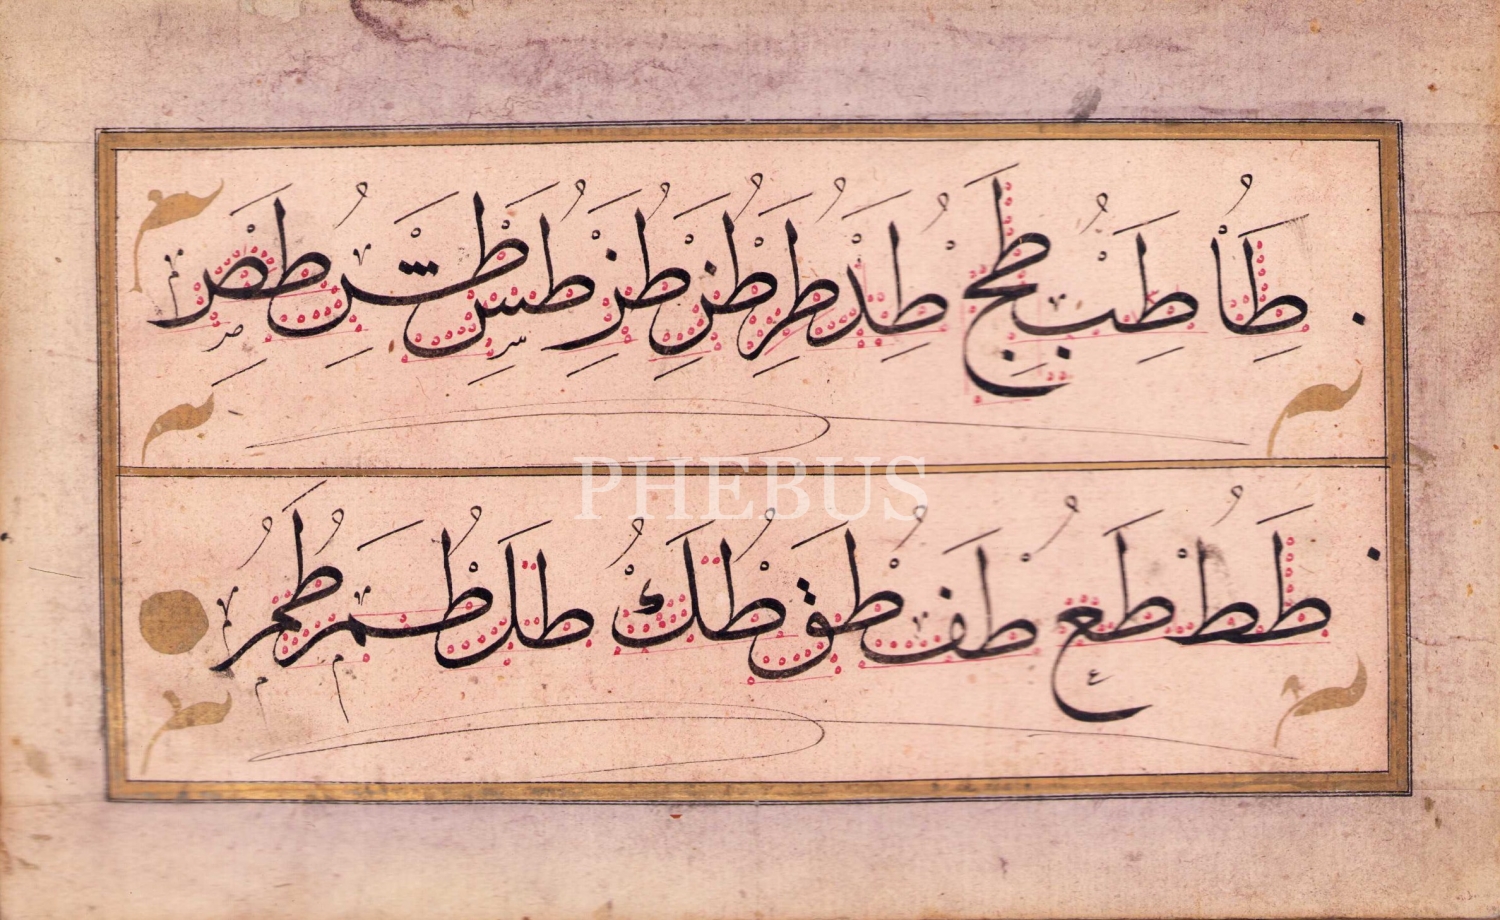 طا طب طج طد طر طز طز طس طش طص
PHEBUS
طط طع طف طق طك طل طم